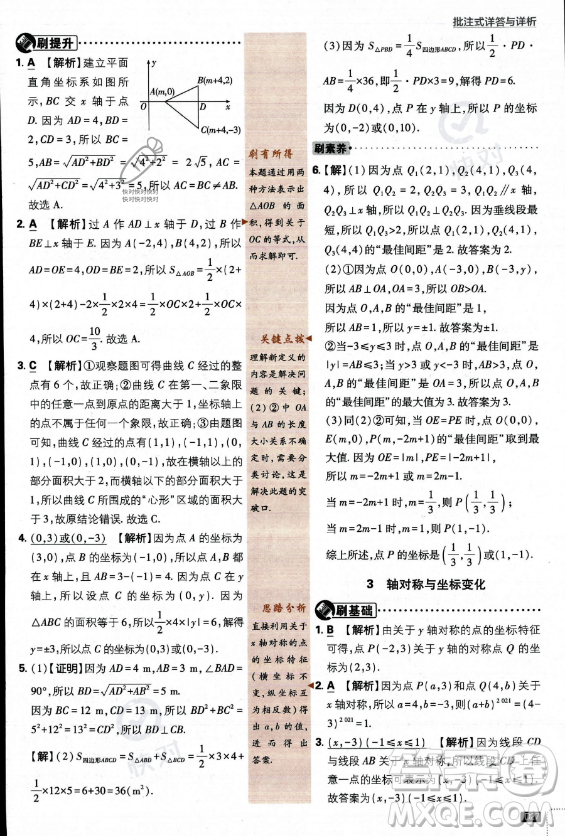 批注式详答与详析
刷提升
1. A 【解析】建立平面
直角坐标系如图所
示，BC 交 x 轴于点
D. 因为 AD=4，BD=
2，CD=3，所以 BC=
y
A(m,0)
B(m+4,2)
O
D
x
C(m+4,-3)
5，AB=√AD²+BD²=√4²+2²=2√5，AC=
√AD²+CD²=√4²+3²=5，所以 AC=BC≠AB.
故选 A.
2. A 【解析】过 A 作 AD⊥x 轴于 D，过 B 作
BE⊥x 轴于 E. 因为 A(-2,4)，B(4,2)，所以
AD=OE=4，OD=BE=2，所以 S△AOB=1/2×(2+
4)×(2+4)-2×1/2×2×4=1/2×OC×2+1/2×OC×
4，所以 OC=10/3. 故选 A.
3. C 【解析】①观察题图可得曲线 C 经过的整
点有 6 个，故正确；②曲线 C 在第一、二象限
中的任意一点到原点的距离大于 1，坐标轴上
的点不属于任何一个象限，故正确；③由题图
可知，曲线 C 经过的点有(1,1)，(-1,1)，(0,
-1)，(0,1)，(1,0)，(-1,0)，故在横轴以上的
部分面积大于 2，横轴以下的部分面积大于
1，故曲线 C 所围成的“心形”区域的面积大
于 3，故原结论错误. 故选 C.
4. (0,3)或(0,-3) 【解析】因为点 A 的坐标为
(3,0)，点 B 的坐标为(-1,0)，所以点 A，B 都
在 x 轴上，且 AB=3-(-1)=4. 因为点 C 在 y
轴上，所以设点 C 的坐标为(0,y). 因为
△ABC 的面积等于 6，所以1/2×4×|y|=6，所以
y=±3，所以点 C 的坐标为(0,3)或(0,-3).
5. (1)【证明】因为 AD=4 m，AB=3 m，∠BAD=
90°，所以 BD=√AD²+AB²=√4²+3²=5(m).
因为 BC=12 m，CD=13 m，所以 BD²+BC²=
5²+12²=13²=CD²，所以 BD⊥CB.
【解】(2)S四边形ABCD=S△ABD+S△BCD=1/2×3×4+
1/2×12×5=6+30=36(m²).
刷有所得
本题通过用两
种方法表示出
△AOB 的面
积，得到关于
OC 的等式，从
而求解即可.
关键点拨
理解新定义的
内容是解决问
题的关键；
(2)②中 OA
与 AB 的长度
大小关系不确
定，需要分类
讨论，这是
解决此题的突
破口.
思路分析
直接利用关于
x 轴对称的点
的坐标特征
(横坐标不
变，纵坐标
互为相反数)
得出 a,b 的
值，进而得出
答案.
(3)因为 S△PBD=1/4S四边形ABCD，所以1/2·PD·
AB=1/4×36，即1/2·PD×3=9，解得 PD=6.
因为 D(0,4)，点 P 在 y 轴上，所以 P 的坐标
为(0,-2)或(0,10).
刷素养
6. 【解】(1)因为点 Q₁(2,1)，Q₂(4,1)，Q₃(4,
4)，所以 Q₁Q₂=2，Q₂Q₃=3，Q₁Q₂∥x 轴，
Q₂Q₃∥y 轴，所以 Q₁Q₂⊥Q₂Q₃. 因为垂线段最
短，所以 Q₁Q₃>2，所以点 Q₁(2,1)，Q₂(4,1)，
Q₃(4,4)的“最佳间距”是 2. 故答案为 2.
(2)①因为点 O(0,0)，A(-3,0)，B(-3,y)，
所以 AB∥y 轴，所以 OA=3，所以 OB>OA.
因为点 O，A，B 的“最佳间距”是 1，所以 AB=
1，所以 y=±1. 故答案为±1.
②当-3≤y≤3 时，点 O，A，B 的“最佳间距”是
|y|=AB≤3；当 y>3 或 y<-3 时，AB>3，此时
点 O，A，B 的“最佳间距”是 OA=3. 所以点 O，
A，B 的“最佳间距”的最大值为 3. 故答案为 3.
(3)同(2)②可知，当 OE=PE 时，点 O(0,0)，
E(m,0)，P(m,-2m+1)的“最佳间距”取到最
大值. 因为 OE=|m|，PE=|-2m+1|，所以
|m|=|-2m+1|，所以 m=-2m+1 或 m=2m-1.
当 m=-2m+1 时，m=1/3，则 P(1/3,1/3)；
当 m=2m-1 时，m=1，则 P(1,-1).
综上所述，点 P 的坐标为(1/3,1/3)或(1,-1).
3 轴对称与坐标变化
刷基础
1. B 【解析】由关于 y 轴对称的点的坐标特征
可得，点 P(-2,3)关于 y 轴的对称点 Q 的坐
标为(2,3).
2. A 【解析】因为点 P(a,3)和点 Q(4,b)关于
x 轴对称，所以 a=4，b=-3，则(a+b)²⁰²¹=
(4-3)²⁰²¹=1.
3. (x,-3)(-1≤x≤1) 【解析】因为线段 CD
与线段 AB 关于 x 轴对称，所以线段 CD 上任
意一点的坐标可表示为(x,-3)(-1≤x≤1).
故答案为(x,-3)(-1≤x≤1).